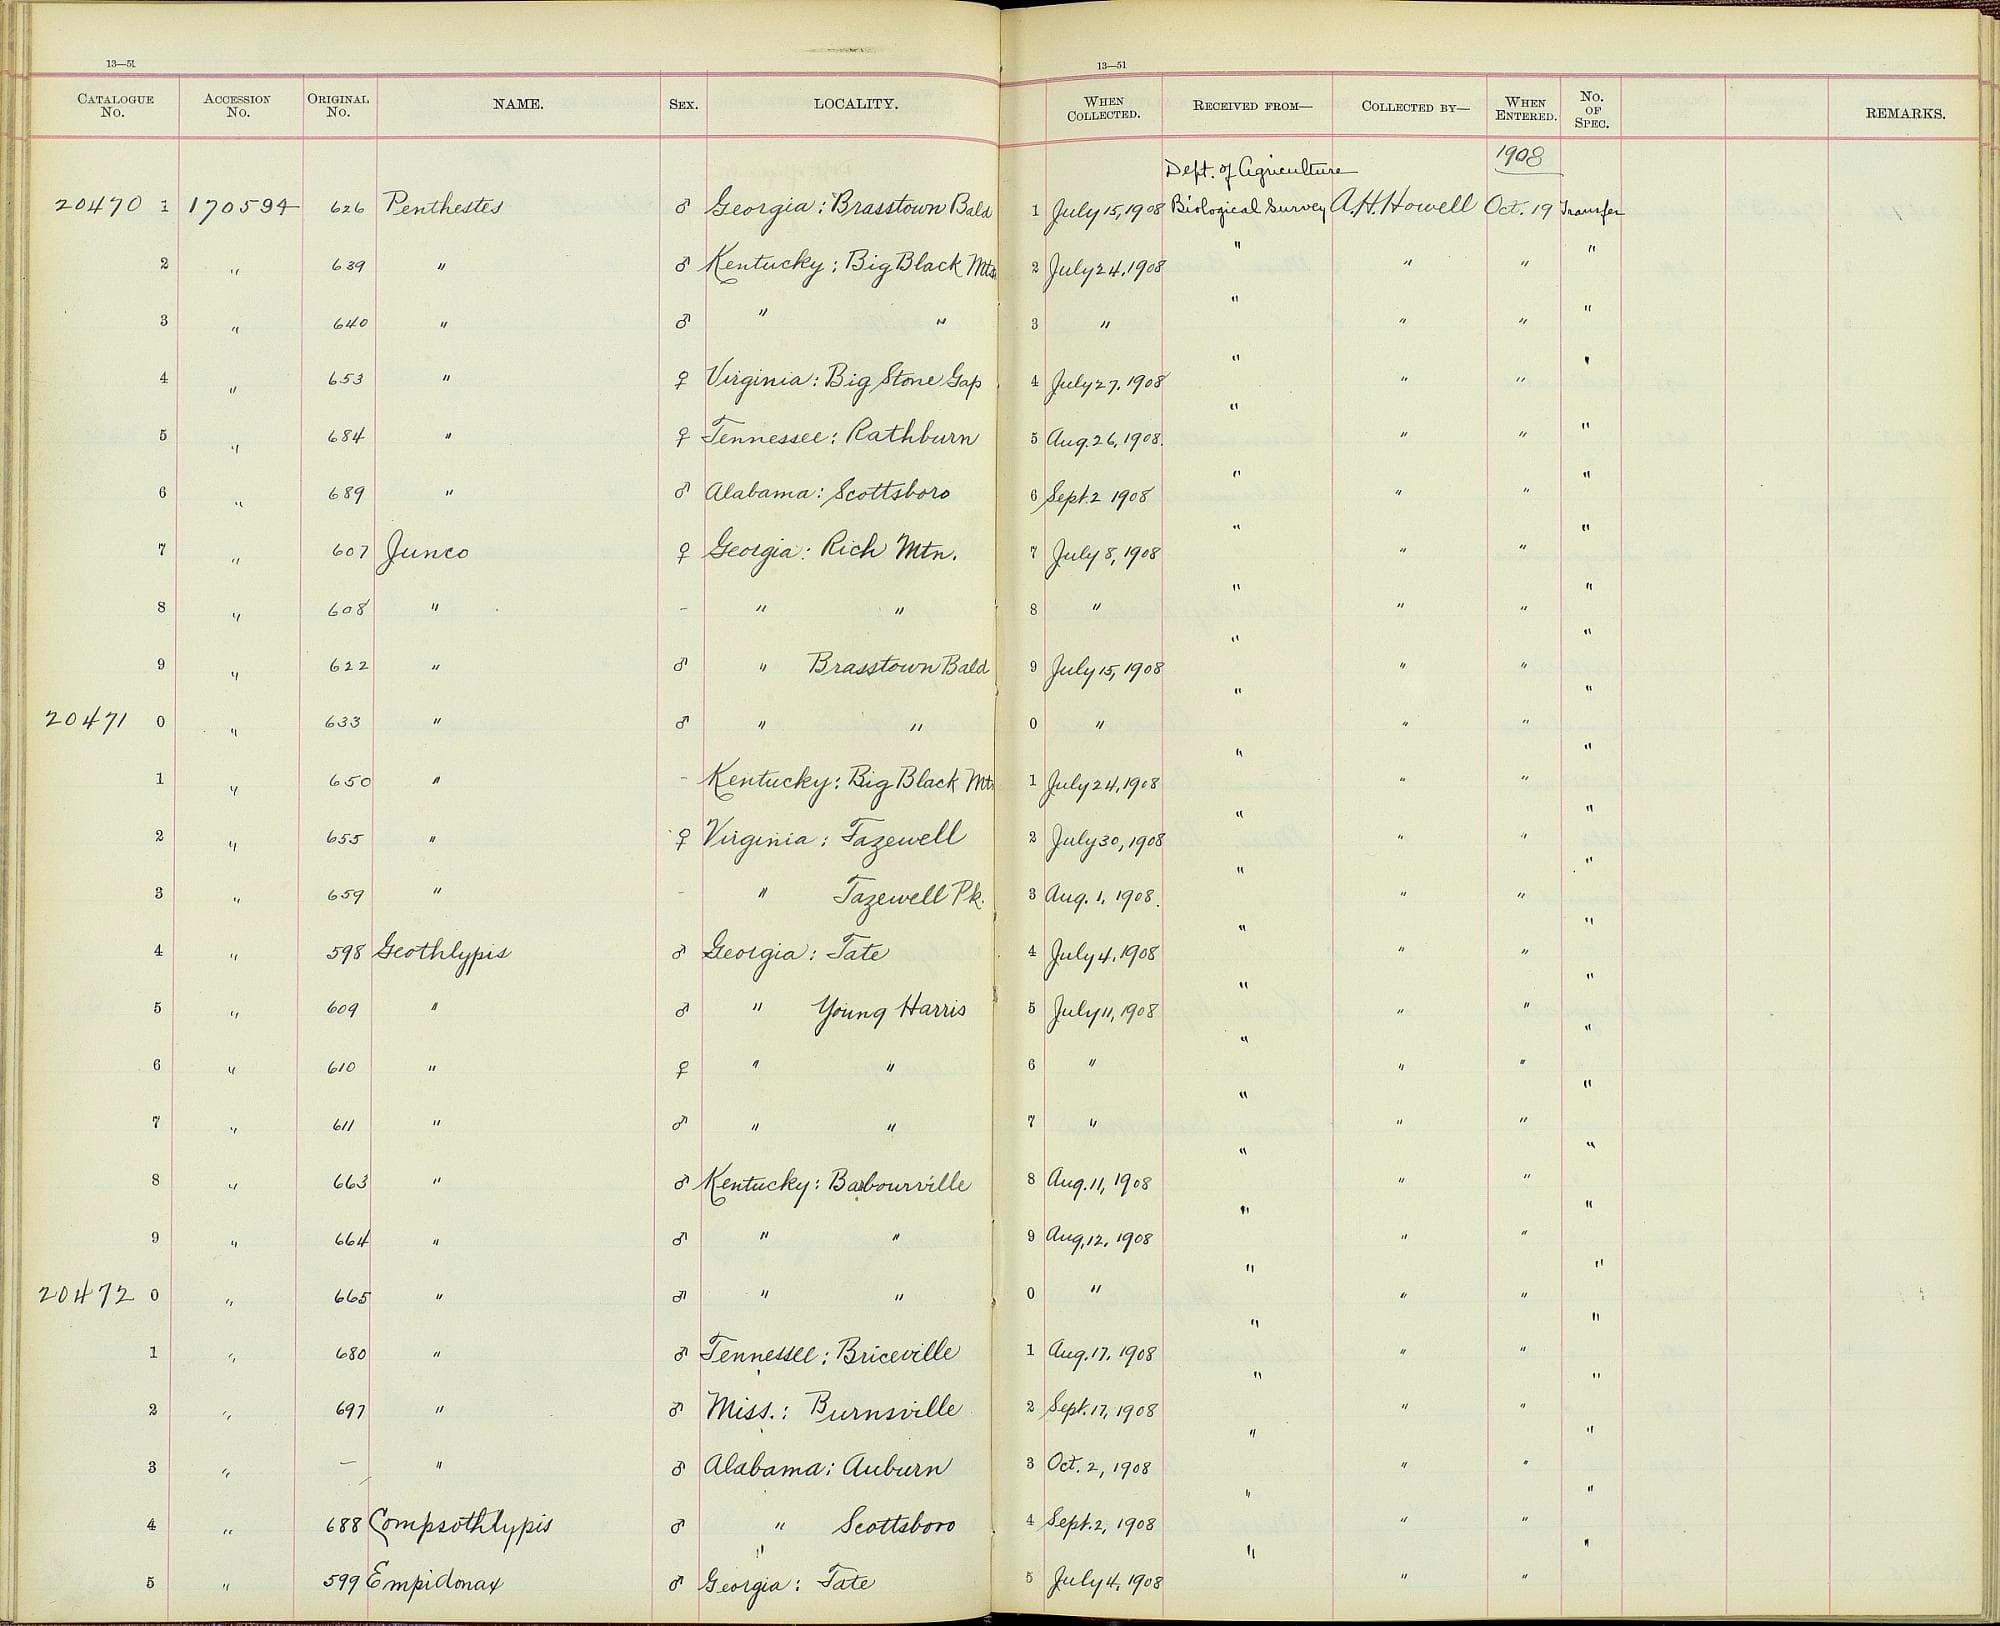 13—51
13—51
CATALOGUE No. ACCESSION No. ORIGINAL No. NAME. SEX. LOCALITY. WHEN COLLECTED. RECEIVED FROM— COLLECTED BY— WHEN ENTERED. No. OF SPEC. REMARKS.
1908
Dept. of Agriculture
20470 1 170594 626 Penthestes ♂ Georgia: Brasstown Bald 1 July 15, 1908 Biological Survey A.H. Howell Oct. 19 Transfer
2 " 639 " ♂ Kentucky: Big Black Mts. 2 July 24, 1908 " " " "
3 " 640 " ♂ " " 3 " " " " "
4 " 653 " ♀ Virginia: Big Stone Gap 4 July 27, 1908 " " " "
5 " 684 " ♀ Tennessee: Rathburn 5 Aug. 26, 1908. " " " "
6 " 689 " ♂ Alabama: Scottsboro 6 Sept. 2 1908 " " " "
7 " 607 Junco ♀ Georgia: Rich Mtn. 7 July 8, 1908 " " " "
8 " 608 " – " " 8 " " " " "
9 " 622 " ♂ " Brasstown Bald 9 July 15, 1908 " " " "
20471 0 " 633 " ♂ " " 0 " " " " "
1 " 650 " – Kentucky: Big Black Mts 1 July 24, 1908 " " " "
2 " 655 " ♀ Virginia: Tazewell 2 July 30, 1908 " " " "
3 " 659 " – " Tazewell Pk. 3 Aug. 1, 1908. " " " "
4 " 598 Geothlypis ♂ Georgia: Tate 4 July 4, 1908 " " " "
5 " 609 " ♂ " Young Harris 5 July 11, 1908 " " " "
6 " 610 " ♀ " " 6 " " " " "
7 " 611 " ♂ " " 7 " " " " "
8 " 663 " ♂ Kentucky: Barbourville 8 Aug. 11, 1908 " " " "
9 " 664 " ♂ " " 9 Aug. 12, 1908 " " " "
20472 0 " 665 " ♂ " " 0 " " " " "
1 " 680 " ♂ Tennessee: Briceville 1 Aug. 17, 1908 " " " "
2 " 697 " ♂ Miss.: Burnsville 2 Sept. 17, 1908 " " " "
3 " — " ♂ Alabama: Auburn 3 Oct. 2, 1908 " " " "
4 " 688 Compsothlypis ♂ " Scottsboro 4 Sept. 2, 1908 " " " "
5 " 599 Empidonax ♂ Georgia: Tate 5 July 4, 1908 " " " "